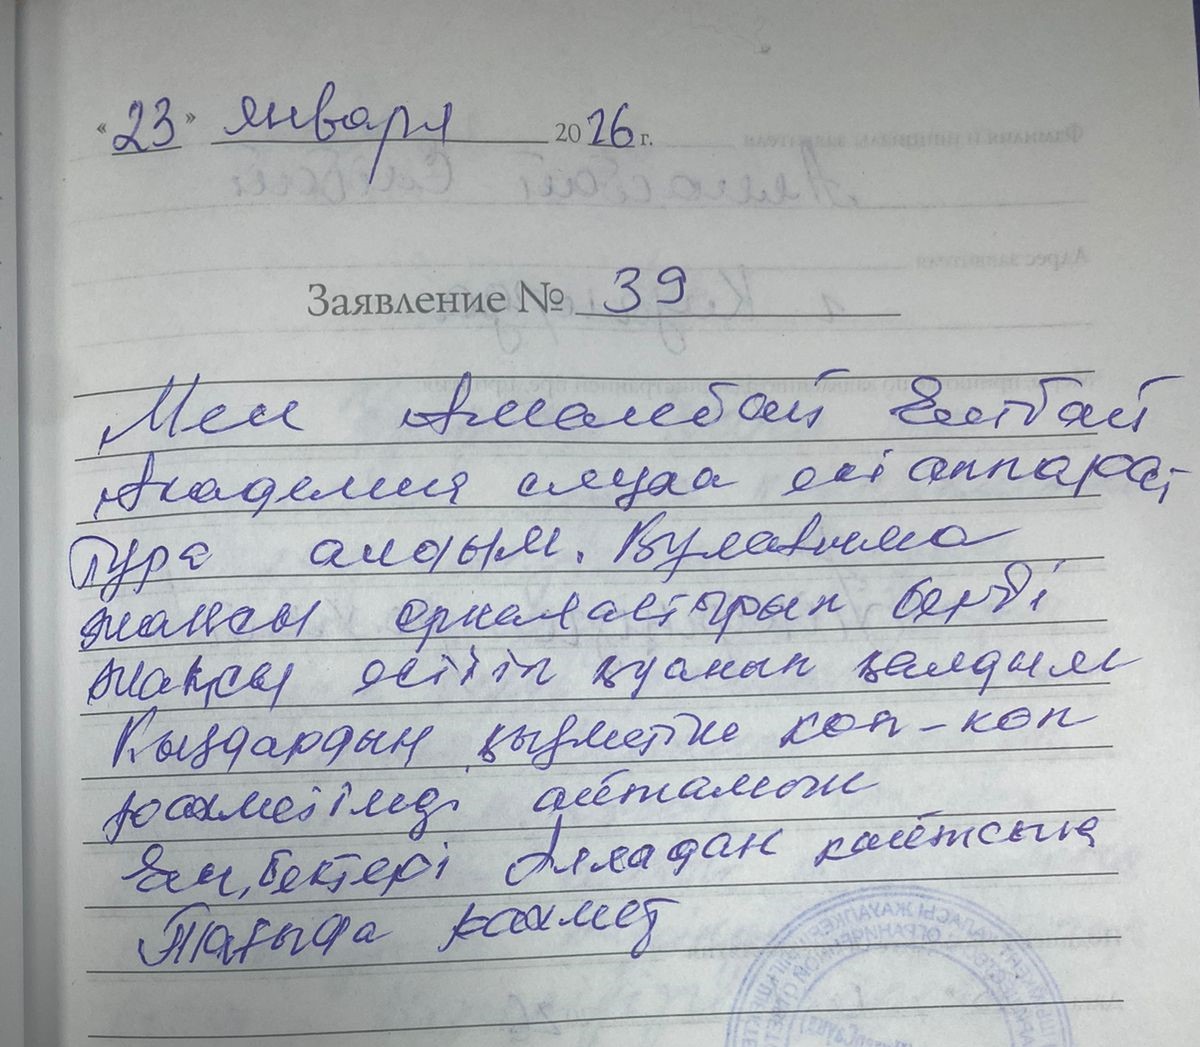 «23» января 2026 г.
Заявление № 39
Мен Амалбай Елубай
Академия слуха екі аппарат
тура алдым.
жақсы орналастырып берді
жақсы естіп қуанып қалдым
Қыздардың қызметіне көп-көп
рахметімді айтамын
Еңбектері Алладан қайтсың
Тағыда рахмет